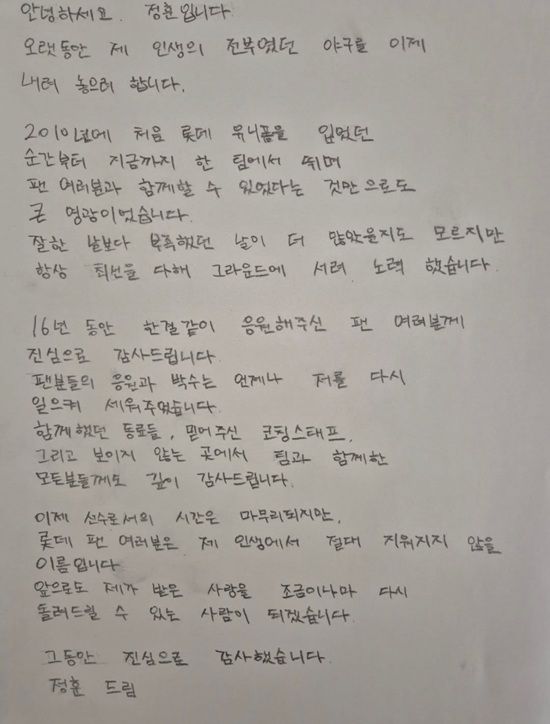 안녕하세요. 정훈입니다.
오랫동안 제 인생의 전부였던 야구를 이제
내려 놓으려 합니다.
2010년에 처음 롯데 유니폼을 입었던
순간부터 지금까지 한 팀에서 뛰며
팬 여러분과 함께할 수 있었다는 것만으로도
큰 영광이었습니다.
잘한 날보다 부족했던 날이 더 많았을지도 모르지만
항상 최선을 다해 그라운드에 서려 노력 했습니다.
16년 동안 한결같이 응원해주신 팬 여러분께
진심으로 감사드립니다.
팬분들의 응원과 박수는 언제나 저를 다시
일으켜 세워주었습니다.
함께했던 동료들, 믿어주신 코칭스태프,
그리고 보이지 않는 곳에서 팀과 함께한
모든분들께도 깊이 감사드립니다.
이제 선수로서의 시간은 마무리되지만,
롯데 팬 여러분은 제 인생에서 절대 지워지지 않을
이름입니다
앞으로도 제가 받은 사랑을 조금이나마 다시
돌려드릴 수 있는 사람이 되겠습니다.
그동안 진심으로 감사했습니다.
정훈 드림